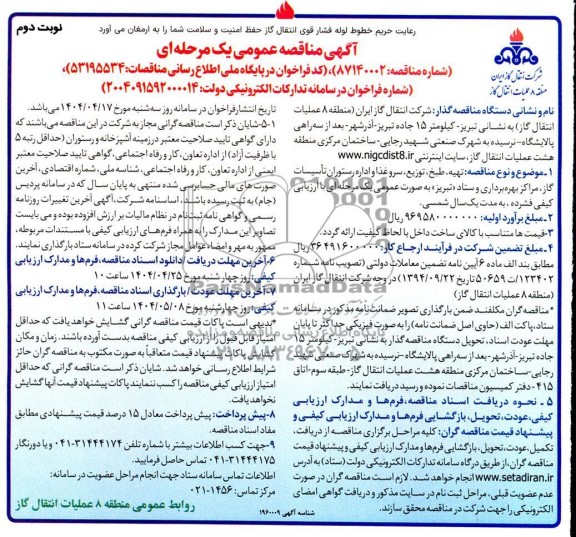 رعایت حریم خطوط لوله فشار قوی انتقال گاز حفظ امنیت و سلامت شما را به ارمغان می آورد
نوبت دوم
آگهی مناقصه عمومی یک مرحله ای
(شماره مناقصه: ۸۷۱۴۰۰۰۲)، (کد فراخوان در پایگاه ملی اطلاع رسانی مناقصات: ۵۳۱۹۵۵۳۴)،
(شماره فراخوان در سامانه تدارکات الکترونیکی دولت: ۲۰۰۴۰۹۱۵۹۲۰۰۰۰۱۴)
شرکت انتقال گاز ایران
منطقه ۸ عملیات انتقال گاز
نام و نشانی دستگاه مناقصه گذار: شرکت انتقال گاز ایران (منطقه ۸ عملیات
انتقال گاز) به نشانی تبریز- کیلومتر ۱۵ جاده تبریز-آذرشهر- بعد از سه راهی
پالایشگاه- نرسیده به شهرک صنعتی شهید رجایی- ساختمان مرکزی منطقه
هشت عملیات انتقال گاز، سایت اینترنتی www.nigcdist8.ir
۱-موضوع و نوع مناقصه: تهیه، طبخ، توزیع، سرو غذا و اداره رستوران تأسیسات
گاز، مراکز بهره برداری و ستاد، به صورت عمومی یک مرحله ای با ارزیابی
کیفی فشرده، به مدت یک سال شمسی.
۲-مبلغ برآورد اولیه: ۹۶۹۵۸۰۰۰۰۰۰۰ ریال
۳-قیمت ها متناسب با کالای ساخت داخل با لحاظ کیفیت ارائه گردد.
۴-مبلغ تضمین شرکت در فرآیند ارجاع کار: ۳۶۴۹۱۶۰۰۰۰۰ ریال
مطابق بند الف ماده ۶ آیین نامه تضمین معاملات دولتی (تصویب نامه شماره
۱۲۳۴۰۲/ت۵۰۶۵۹ تاریخ ۱۳۹۴/۰۹/۲۲) در وجه شرکت انتقال گاز ایران
(منطقه ۸ عملیات انتقال گاز)
*مناقصه گران مکلفند ضمن بارگذاری تصویر ضمانت نامه مذکور در سامانه
ستاد، پاکت الف (حاوی اصل ضمانت نامه) را به صورت فیزیکی حداکثر تا پایان
مهلت عودت اسناد، تحویل دستگاه مناقصه گذار به نشانی تبریز- کیلومتر ۱۵
جاده تبریز-آذرشهر- بعد از سه راهی پالایشگاه- نرسیده به شهرک صنعتی شهید
رجایی- ساختمان مرکزی منطقه هشت عملیات انتقال گاز- طبقه سوم- اتاق
۴۱۵- دفتر کمیسیون مناقصات نموده و رسید دریافت نمایند.
۵ - نحوه دریافت اسناد مناقصه، فرم ها و مدارک ارزیابی
کیفی، عودت، تحویل، بازگشایی فرم ها و مدارک ارزیابی کیفی و
پیشنهاد قیمت مناقصه گران: کلیه مراحل برگزاری مناقصه از دریافت،
تکمیل، عودت، تحویل، بازگشایی فرم ها و مدارک ارزیابی کیفی و پیشنهاد قیمت
مناقصه گران، از طریق درگاه سامانه تدارکات الکترونیکی دولت (ستاد) به آدرس
www.setadiran.ir انجام خواهد شد. لازم است مناقصه گران در صورت
عدم عضویت قبلی، مراحل ثبت نام در سایت مذکور و دریافت گواهی امضای
الکترونیکی را جهت شرکت در مناقصه محقق سازند.
تاریخ انتشار فراخوان در سامانه روز سه شنبه مورخ ۱۴۰۴/۰۴/۱۷ می باشد.
۱-۵-شایان ذکر است مناقصه گرانی مجاز به شرکت در این مناقصه می باشند که
دارای گواهی تایید صلاحیت معتبر در زمینه آشپزخانه و رستوران (حداقل رتبه ۵
با ظرفیت آزاد) از اداره تعاون، کار و رفاه اجتماعی، گواهی تایید صلاحیت معتبر
ایمنی از اداره تعاون، کار و رفاه اجتماعی، شناسه ملی، شماره اقتصادی، آخرین
صورت های مالی حسابرسی شده منتهی به پایان سال که در سامانه پردیس
(جام) به ثبت رسیده باشد، اساسنامه شرکت، آگهی آخرین تغییرات روزنامه
رسمی و گواهی نامه ثبت نام در نظام مالیات بر ارزش افزوده بوده و می بایست
تصاویر این مدارک را به همراه فرم های ارزیابی کیفی با مستندات مربوطه،
ممهور به مهر و امضاء عوامل مجاز شرکت کرده در سامانه ستاد بارگذاری نمایند.
۶-آخرین مهلت دریافت/دانلود اسناد مناقصه، فرم ها و مدارک ارزیابی
کیفی: روز چهار شنبه مورخ ۱۴۰۴/۰۴/۲۵ ساعت ۱۰
۷-آخرین مهلت عودت/بارگذاری اسناد مناقصه، فرم ها و مدارک ارزیابی
کیفی: روز چهارشنبه مورخ ۱۴۰۴/۰۵/۰۸ ساعت ۱۱
*بدیهی است پاکات قیمت مناقصه گرانی گشایش خواهد یافت که حداقل
امتیاز قابل قبول را از ارزیابی کیفی مناقصه بدست آورده باشند. زمان و مکان
گشایش پاکات پیشنهاد قیمت متعاقباً به صورت مکتوب به مناقصه گران حائز
شرایط اطلاع رسانی خواهد شد. شایان ذکر است مناقصه گرانی که حداقل
امتیاز ارزیابی کیفی مناقصه را کسب ننمایند پاکات پیشنهاد قیمت آنها گشایش
نخواهد یافت.
۸-پیش پرداخت: پیش پرداخت معادل ۱۵ درصد قیمت پیشنهادی مطابق
مفاد اسناد مناقصه.
۹-جهت کسب اطلاعات بیشتر با شماره تلفن ۳۱۴۴۴۱۷۴-۰۴۱ و یا دورنگار
۳۱۴۴۴۱۷۵-۰۴۱ تماس حاصل فرمایید.
اطلاعات تماس سامانه ستاد جهت انجام مراحل عضویت در سامانه:
مرکز تماس: ۱۴۵۶-۰۲۱
روابط عمومی منطقه ۸ عملیات انتقال گاز
شناسه آگهی ۱۹۶۰۰۰۹
ParsNamadData